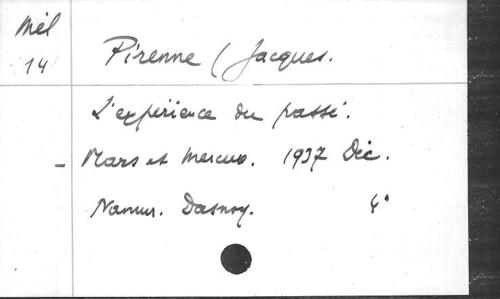 Mél
14
Pirenne (Jacques.
L'expérience du passé.
- Mars et Mercure. 1937 Déc.
Namur. Dasnoy. 4°